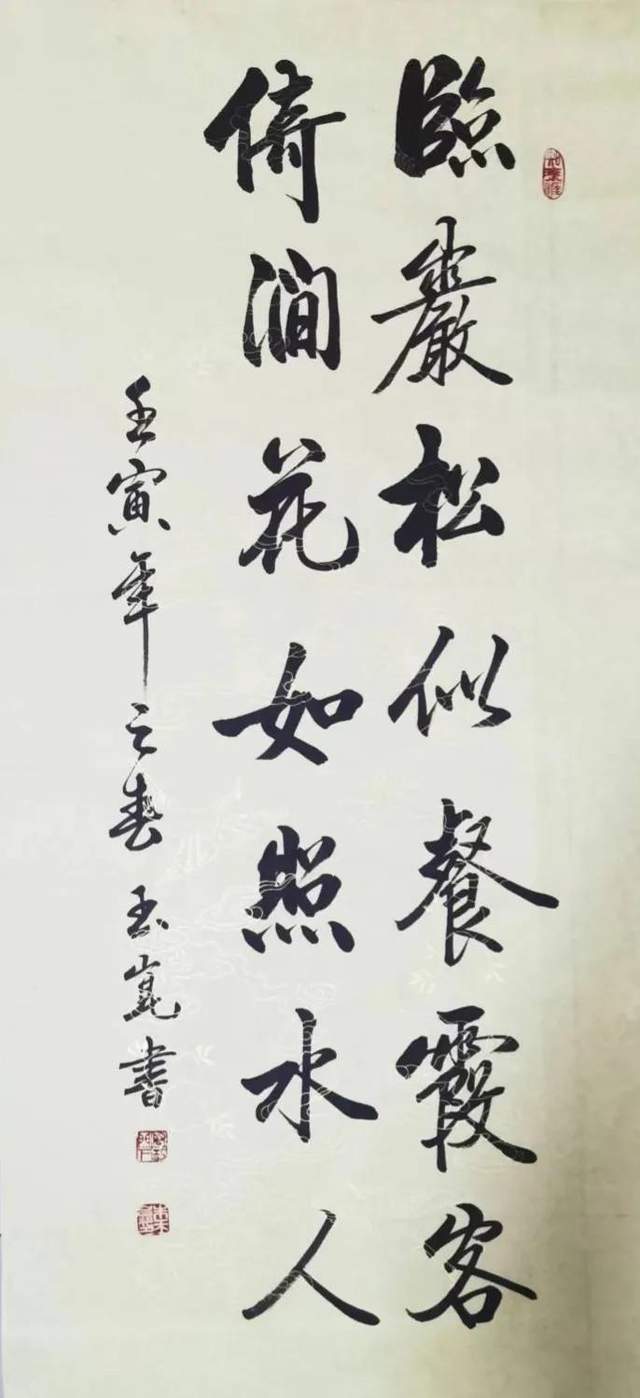 臨巖松似餐霞客
倚澗花如照水人
壬寅年之春玉嵬書